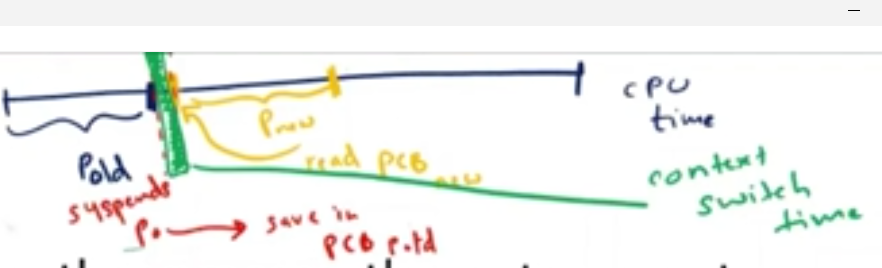 CPU
time
Pnew
Pold
read PCB new
context
switch
time
suspends
Po → save in
PCB P.old